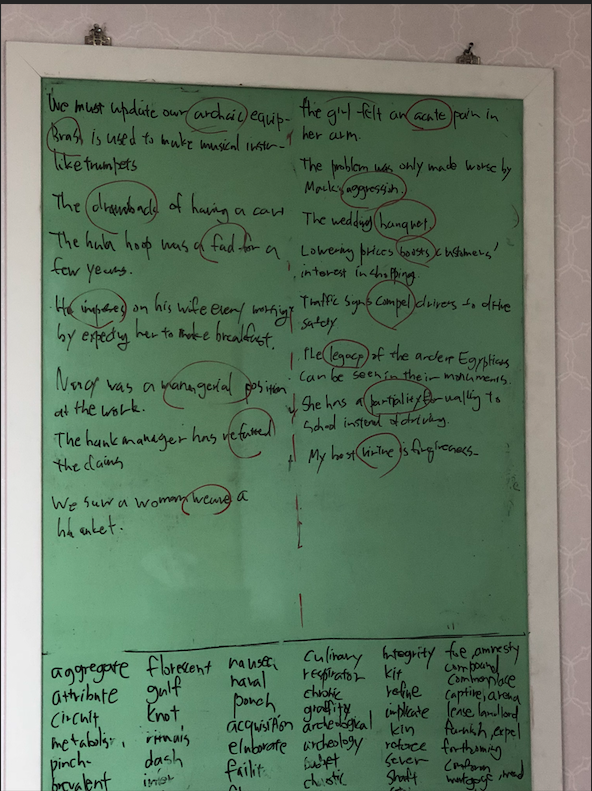 We must update our archaic equip-
Brass is used to make musical instru-
like trumpets
The drawback of having a car
The hula hoop was a fad for a
few years.
He imposes on his wife every morning
by expecting her to make breakfast.
Nancy was a managerial position
at the work.
The bank manager has refused
the claims
We saw a woman weave a
blanket.
The girl felt an acute pain in
her arm.
The problem was only made worse by
Mark's aggression.
The wedding banquet.
Lowering prices boosts customers'
interest in shopping.
Traffic signs compel drivers to drive
safety
The legacy of the ancient Egyptians
can be seen in their monuments.
She has a partiality for walking to
school instead of driving.
My best virtue is forgiveness.
aggregate florescent nausea culinary integrity fue, amnesty
attribute gulf naval respirator kit compound
circuit knot ponch chronic refine commonplace
metabolis rituals acquisition graffity implicate captive, arena
pinch- dash elaborate archeological kin lense, landlord
prevalent failit archeology rotace furnish, expel
budget sever forthcoming
chaotic shaft conform
mortgage